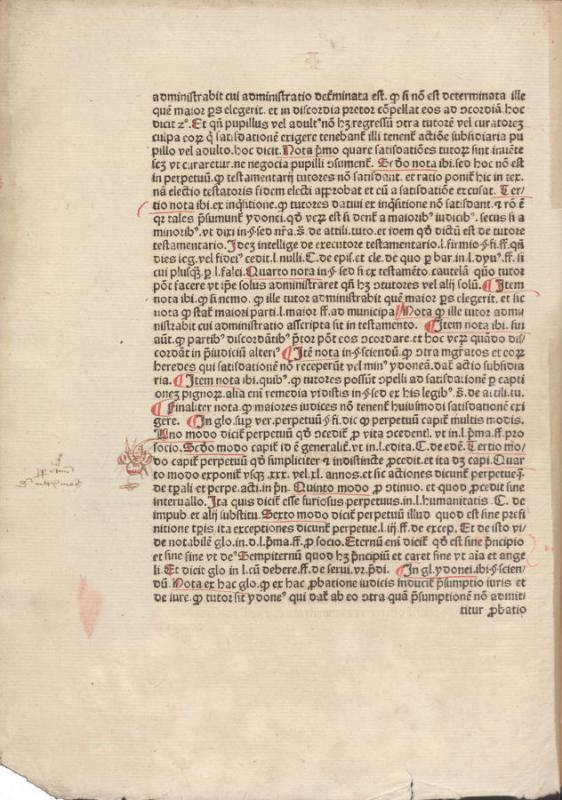 administrabit cui administratio deẽminata est. ꝙ si nõ est determinata ille
quẽ maior ꝑs elegerit. et in discordia pretor cõpellat eos ad ↄcordiã hoc
dicit zͦ. Et qñ pupillus vel adultꝰ nõ hꝫ regressũ ↄtra tutorẽ vel curatorẽ
culpa eoꝝ ꝙ satisdationẽ exigere tenebant᷑ illi tenent᷑ actiõe subsidiaria pu
pillo vel adulto. hoc dicit. Nota pͥmo quare satisdatiões tutoꝝ sint inuẽte
scꝫ vt curaretur. ne negocia pupilli ↄsument᷑. Scd̃o nota ibi. sed hoc nõ est
in perpetuũ. ꝙ testamentarij tutores nõ satisdant. et ratio ponit᷑ hic in tex.
nã electio testatoris fidem electi approbat et eũ a satisdatiõe excusat. Ter⸗
tio nota ibi. ex inqͥsitione. ꝙ tutores datiui ex inqͥsitione nõ satisdant. ⁊ rõ ẽ
qꝛ tales p̃sumunt᷑ ydonei. qđ veꝝ est si dent᷑ a maioribꝰ iudicibꝰ. secus si a
minoribꝰ. vt dixi in.§. sed nr̃a. s̃. de attili. tuto. et idem qđ dictũ est de tutore
testamentario. Idẽ intellige de executore testamentario. l. firmio §. fi. ff. qñ
dies leg. vel fideiꝰ cedit. l. nulli. C. de epis. et cle. de quo ꝑ bar. in. l. dyuꝰ. ff. si
cui plusqꝫ. ꝑ l. falci. Quarto nota in §. sed si ex testamẽto. cautelã quõ tutor
põt facere vt ip̃e solus administraret qñ hꝫ ↄtutores vel alij solũ. Item
nota ibi. ꝙ si nemo. ꝙ ille tutor administrabit quẽ maior ꝑs elegerit. et sic
nota ꝙ stat᷑ maiori parti. l. maior ff. ad municipa Nota ꝙ ille tutor admi⸗
nistrabit cui administratio asscripta sit in testamento. Item nota ibi. sin
aũt. ꝙ partibꝰ discordãtibꝰ p̃tor põt eos ↄcordare. et hoc veꝝ quãdo dis⸗
cordãt in p̃iudiciũ alteriꝰ Itẽ nota in §. sciendũ. ꝙ ↄtra mg̃ratos et eoꝝ
heredes qui satisdationẽ nõ receperũt vel minꝰ ydoneã. dat᷑ actio subsidia
ria. Item nota ibi. quibꝰ. ꝙ tutores possũt ↄpelli ad satisdationẽ ꝑ capti
onẽ pignoꝝ. alia em̃ remedia vidistis in §. ex his legibꝰ. s̃. de attili. tu.
Finaliter nota. ꝙ maiores iudices nõ tenent᷑ huiusmodi satisdationẽ exi
gere. In glo. suꝑ ver. perpetuũ §. fi. dic ꝙ perpetuũ capit᷑ multis modis.
Uno modo dicit᷑ perpetuũ qđ ↄcedit᷑ ꝓ vita ↄcedentͥ. vt in. l. pͥma. ff. pro
socio. Scd̃o modo capit᷑ id ẽ generalit᷑. vt in. l. edita. C. de edẽ. Tertio mo⸗
do capit᷑ perpetuũ qđ simpliciter ⁊ indistincte ꝓcedit. et ita dꝫ capi. Quar
to modo exponit᷑ vsqꝫ. xxx. vel. xl. annos. et sic actiones dicunt᷑ perpetueͣ
de tꝑali et perpe. acti. in pͥn. Quinto modo ꝓ ↄtinuo. et quod ꝓcedit sine
interuallo. Ita quis dicit᷑ esse furiosus perpetuus. in. l. humanitatis. C. de
impub. et alij substitu. Sexto modo dicit᷑ perpetuũ illud quod est sine prefi
nitione tꝑis ita exceptiones dicunt᷑ perpetue. l. iij. ff. de excep. Et de isto vi⸗
de notabilẽ glo. in. d. l. pͥma. ff. ꝓ socio. Eternũ eni dicit᷑ qđ est sine pͥncipio
et sine fine vt deꝰ Sempiternũ quod hꝫ pͥncipiũ et caret fine vt aĩa et ange
li. Et dicit glo in l. cũ debere. ff. de serui. vr. p̃di. In gl. ydonei. ibi §. scien⸗
dũ. Nota ex hac glo. ꝙ ex hac ꝓbatione iudicis inducit᷑ p̃sumptio iuris et
de iure. ꝙ tutor sit ydoneꝰ qui dat᷑ ab eo ↄtra quã p̃sumptionẽ nõ admitti
titur ꝓbatio